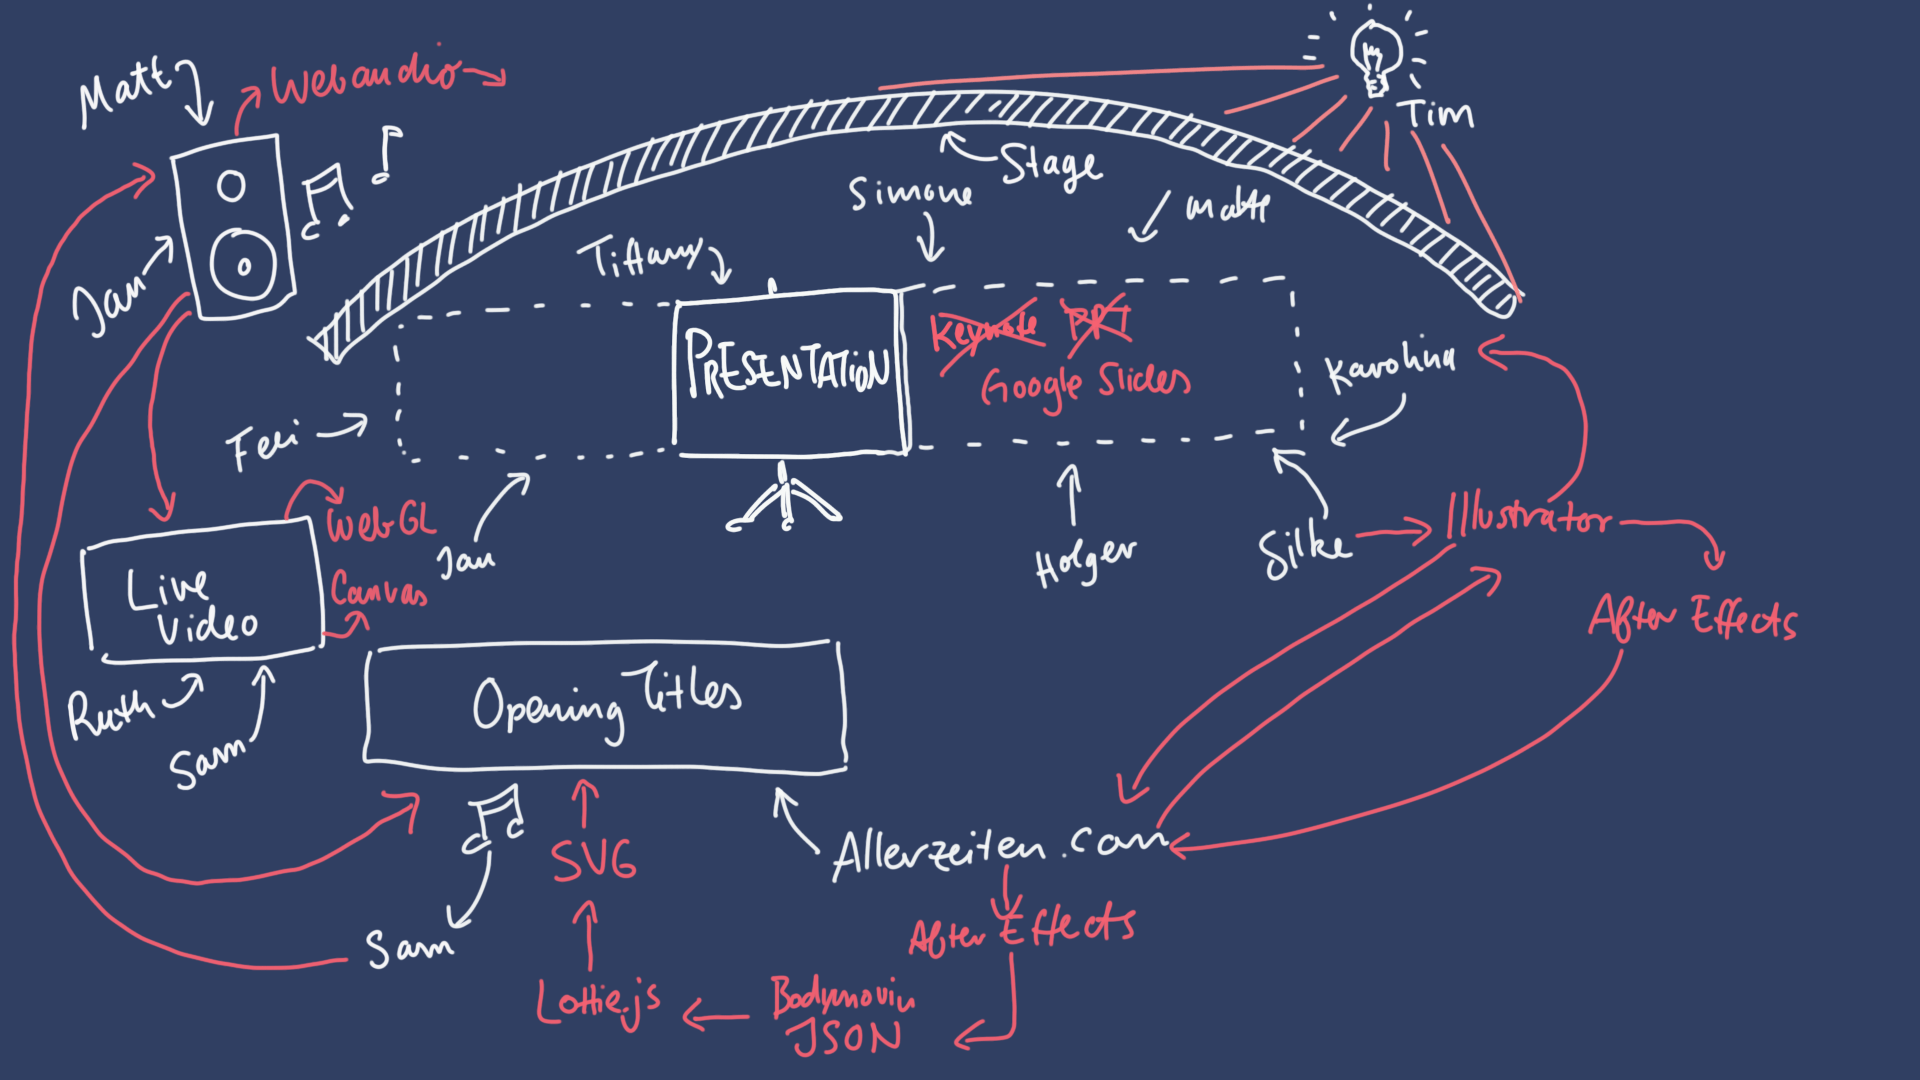 Matt
Webaudio
Tim
Stage
Simone
Matt
Tiffany
Jan
PRESENTATION
Keynote PPT
Google Slides
Karolina
Feli
WebGL
Illustrator
Jan
Holger
Silke
Live
Video
Canvas
After Effects
Ruth
Sam
Opening Titles
SVG
Allerzeiten.com
Sam
After Effects
Lottie.js
Bodymovin
JSON